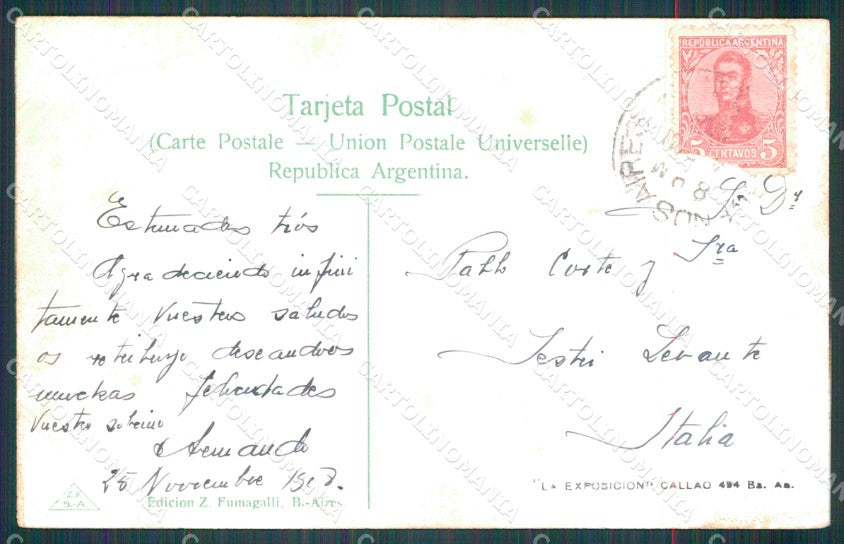 REPUBLICA ARGENTINA
5 CENTAVOS 5
Tarjeta Postal
(Carte Postale — Union Postale Universelle)
Republica Argentina.
Estimados tiós
Agradeciendo infini
tamente vuestros saludos
os retribuyo deseandoos
muchas felicidades
Vuestro sobrino
Armando
25 Noviembre 1908.
Sr Dn
Pablo Corte y Sra
Sestri Levante
Italia
Z.F.
S.A.
Edicion Z. Fumagalli, B.-Aires
"La EXPOSICION" CALLAO 494 Bs. As.
CARTOLINOMANIA